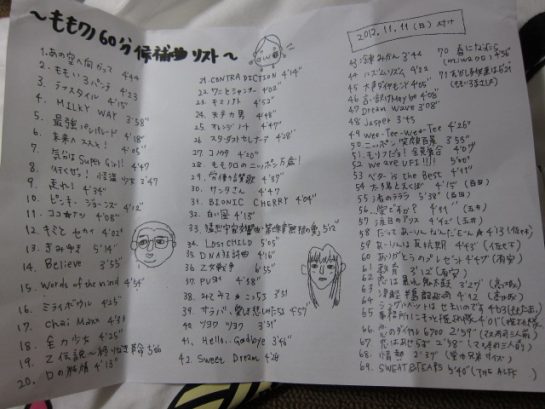 〜ももクロ 60分 候補曲リスト〜
2012.11.11(日) 付け
1. あの空へ向かって 4'44
2. ももいろパンチ 4'23
3. ラフスタイル 4'15"
4. MILKY WAY 3'58"
5. 最強パレパレード 4'18"
6. 未来へススメ! 4'05"
7. 気分はSuper Girl! 4'47
8. 行くぜっ! 怪盗少女 3'47
9. 走れ! 4'34"
10. ピンキージョーンズ 4'12"
11. ココ☆ナツ 4'08"
12. キミとセカイ 4'02"
13. きみゆき 5'14"
14. Believe 3'55"
15. Words of the mind 4'54"
16. ミライボウル 4'25"
17. Chai Maxx 4'34
18. 全力少女 4'25"
19. Z伝説〜終わりなき革命 5'00
20. Dの純情 4'13"
21. CONTRADICTION 4'14"
22. ワニとシャンプー 4'02"
23. キミノアト 4'52"
24. 天手力男 4'48
25. オレンジノート 4'47
26. スターダストセレナーデ 4'28"
27. コノウタ 4'20"
28. ももクロのニッポン万歳!
29. 労働讃歌 4'47
30. サンタさん 4'47"
31. BIONIC CHERRY 4'04"
32. 白い風 4'13"
33. 猛烈宇宙交響曲・第七楽章「無限の愛」5'12"
34. LOST CHILD 5'05"
35. DNA狂詩曲 4'16"
36. Z女戦争 6'55
37. PUSH 4'58"
38. みてみて☆こっち 3'51
39. サラバ、愛しき悲しみたちよ 4'57"
40. ツヨクツヨク 3'51"
41. Hello... Goodbye 3'46"
42. Sweet Dream 4'20
43. 冷凍みかん 3'44
44. ハズムリズム 4'22"
45. 大声ダイヤモンド 4'05"
46. 言い訳Maybe 4'08"
47. Dream Wave 3'08"
48. Jasper 3'45
49. Wee-Tee-Wee-Tee 4'26"
50. ニッポン笑顔百景 3'55"
51. もリフだョ!全員集合 4'09"
52. We are UFI!!! 5'00"
53. ベター is the Best 4'11"
54. 太陽とえくぼ 4'15"
55. 渚のラララ 5'38"
57. 涙目のアリス 4'42"
58. だって あーりんなんだもーん☆ 4'13
59. あーりんは反抗期 4'43
60. ありがとうのプレゼント 4'47
61. 教育 3'12"
62. 恋は暴れ鬼太鼓 3'27"
63. 津軽半島龍飛崎 4'12
66. 恋のダイヤル6700 2'59"
67. 恋はあせらず 2'58"
68. 情熱 2'37"
69. SWEAT & TEARS 5'40" (THE ALFEE)
70. 春になったら (miwa) 4'56"